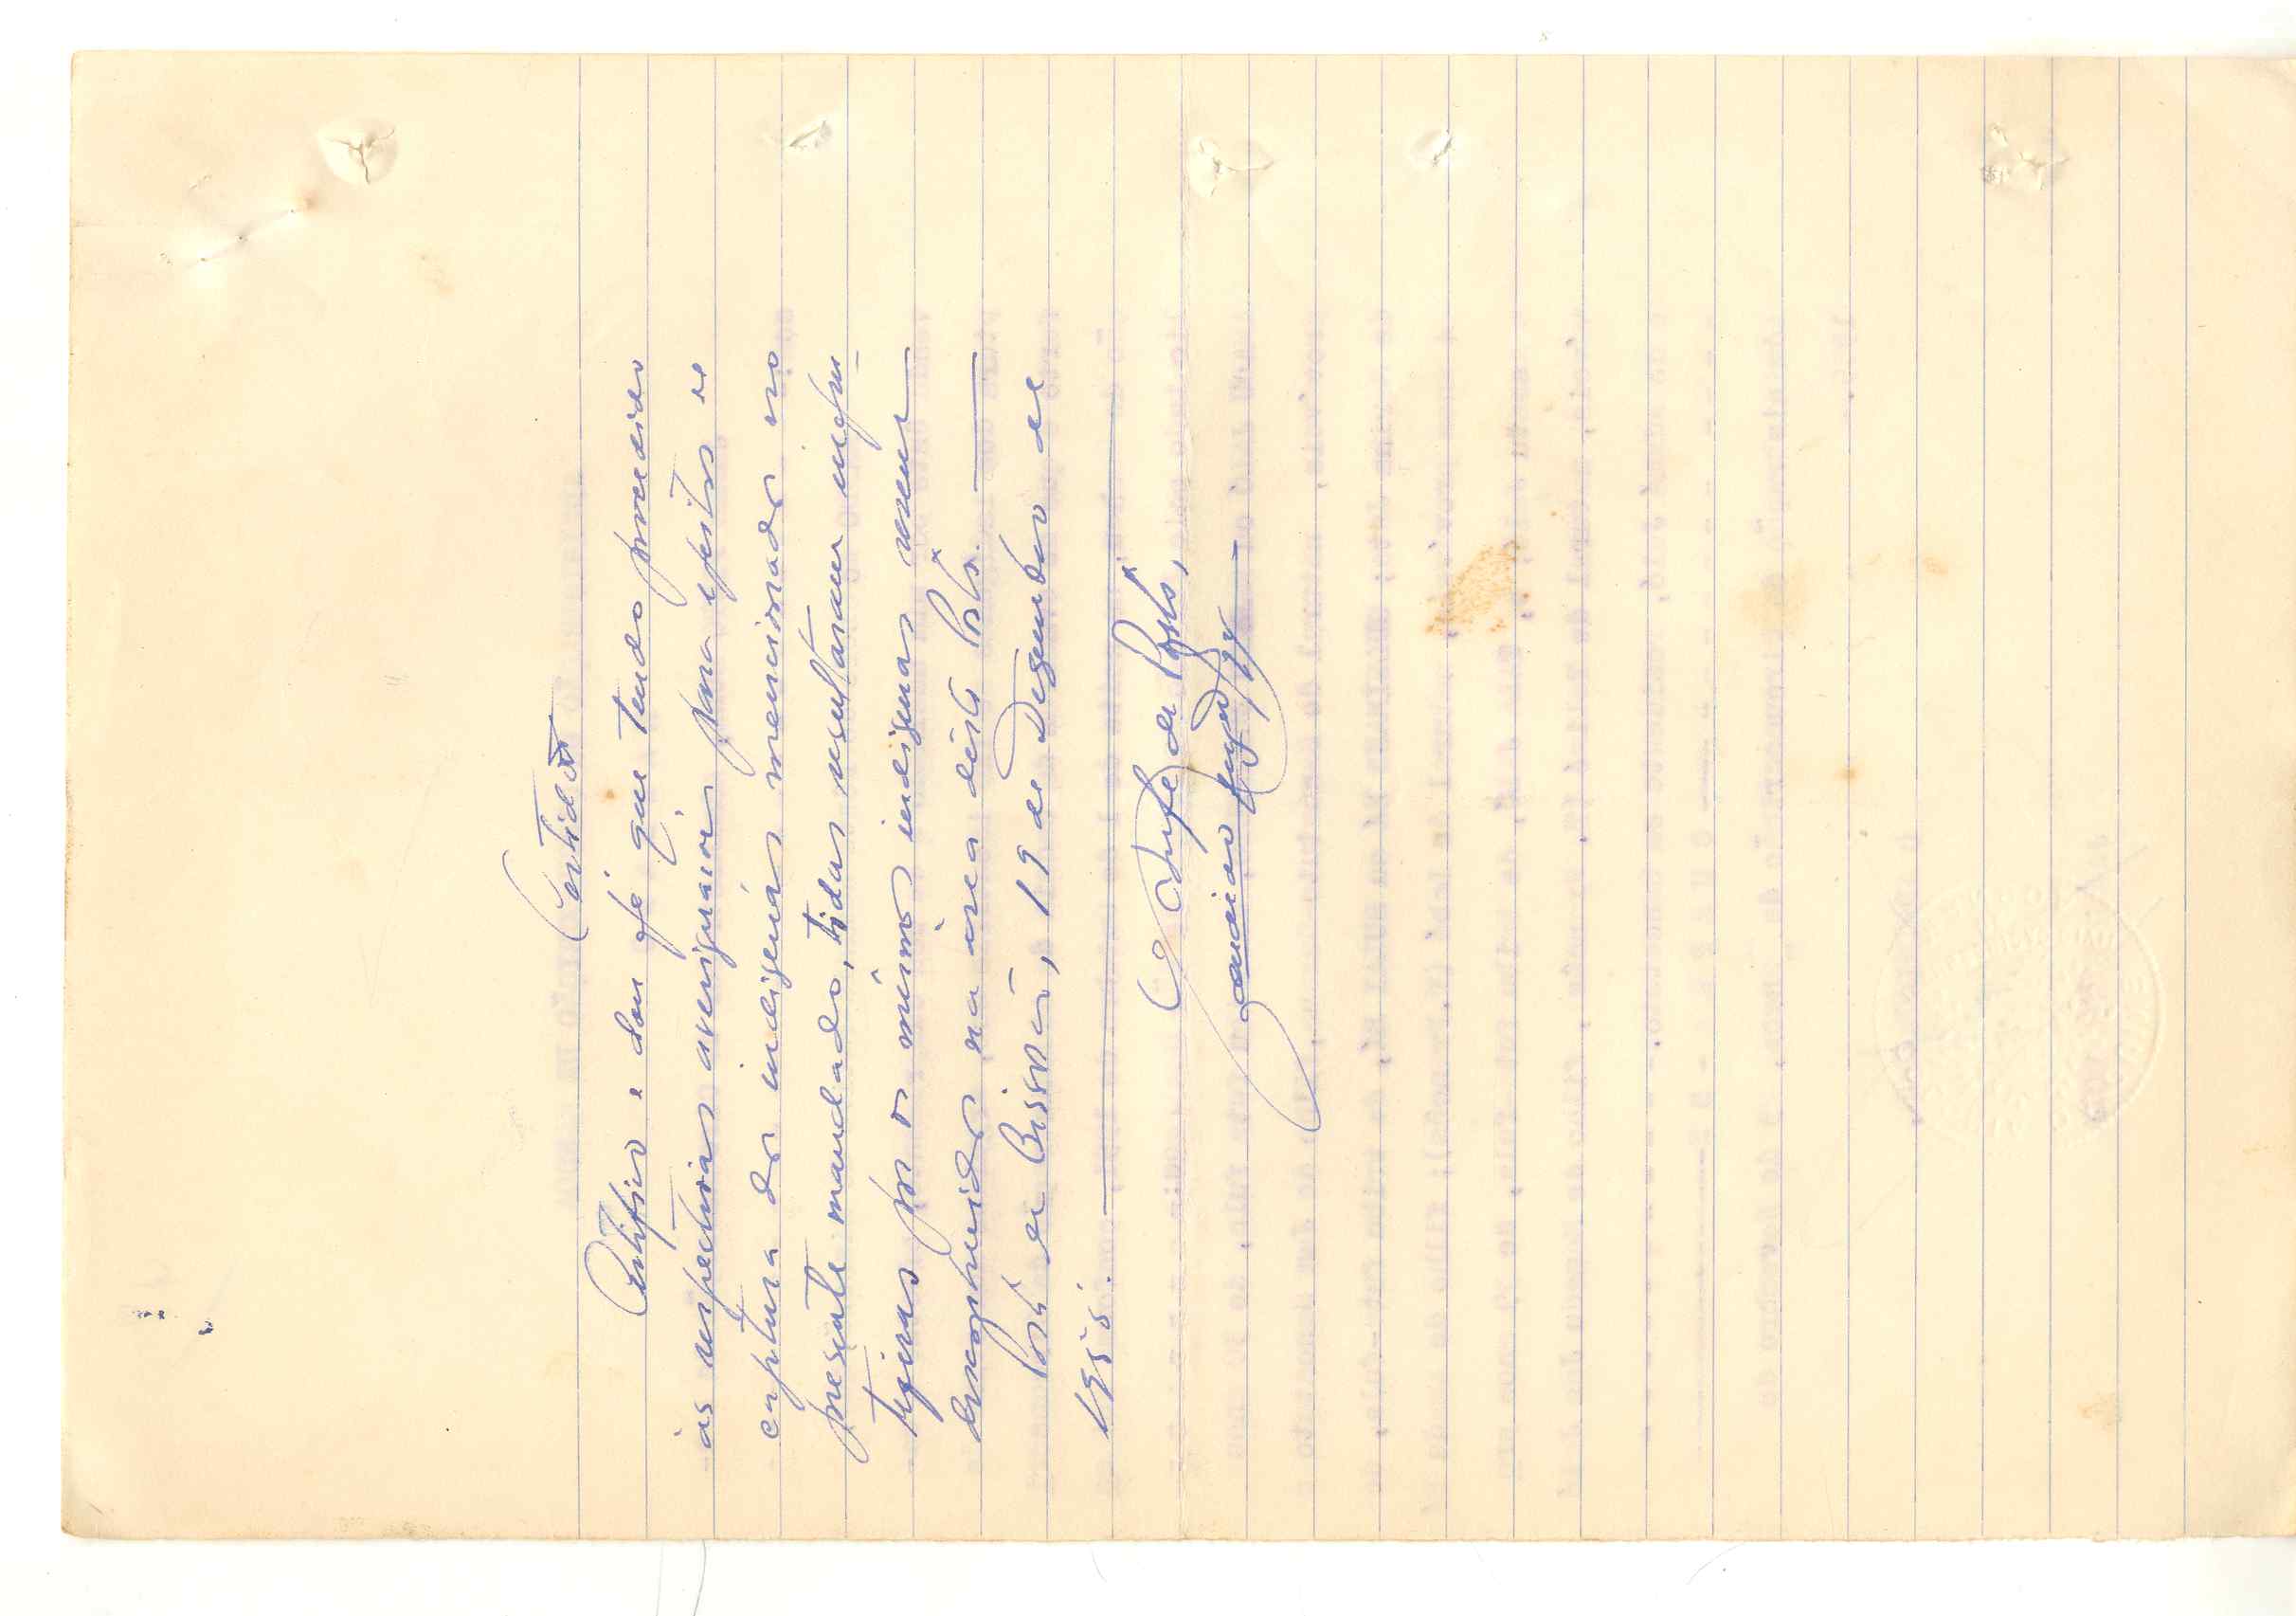 Certidão
Certifico e dou fé que tendo procedido
às respectivas averiguações para efeitos de
captura dos indígenas mencionados no
presente mandado, todas resultaram infru-
tíferas por os mesmos indígenas serem
desconhecidos na área dêste Pôsto.
Pôsto de Bissorã, 19 de Dezembro de
1955.
O Chefe de Pôsto,